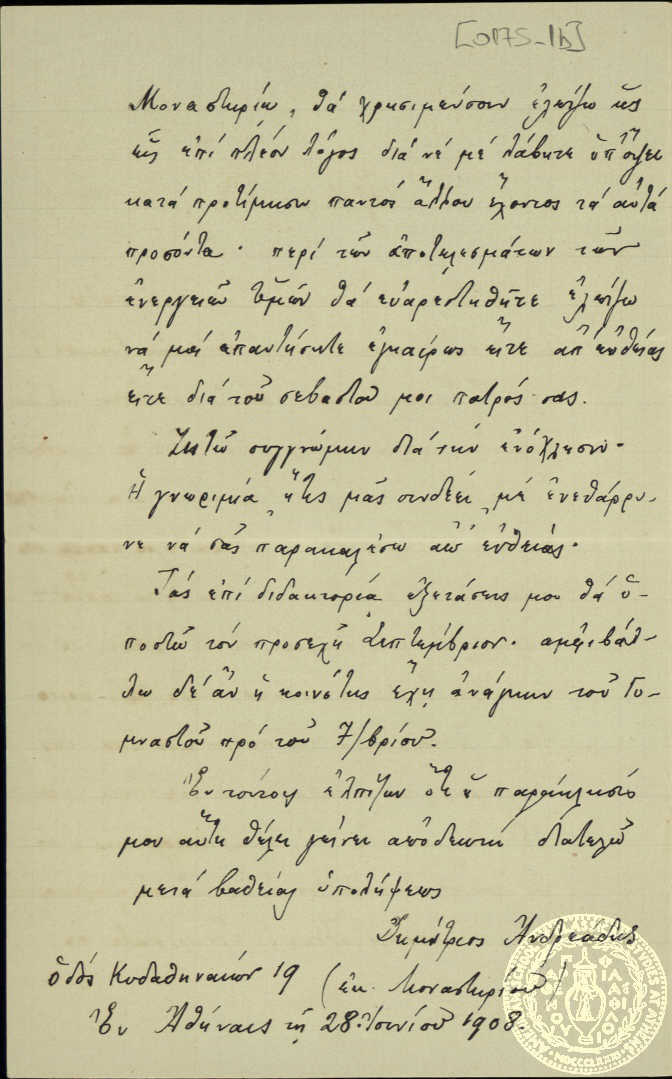 [0175_1b]
Μοναστηρίῳ, θά χρησιμεύσουν ἐλπίζω ὡς
εἷς ἐπί πλέον λόγος διά νά μέ λάβητε ὑπ' ὄψει
κατά προτίμησιν παντός ἄλλου ἔχοντος τά αὐτά
προσόντα. περί τῶν ἀποτελεσμάτων τῶν
ἐνεργειῶν Ὑμῶν θά εὐαρεστηθῆτε ἐλπίζω
νά μοί ἀπαντήσητε ἐγκαίρως εἴτε ἀπ' εὐθείας
εἴτε διά τοῦ σεβαστοῦ μοι πατρός σας.
Ζητῶ συγγνώμην διά τήν ἐνόχλησιν.
Ἡ γνωριμία ἥτις μᾶς συνδέει μέ ἐνεθάρρυ-
νε νά σᾶς παρακαλέσω ἀπ' εὐθείας.
Τάς ἐπί διδακτορίᾳ ἐξετάσεις μου θά ὑ-
ποστῶ τόν προσεχῆ Σεπτέμβριον. ἀμφιβάλ-
λω δέ ἄν ἡ κοινότης ἔχῃ ἀνάγκην τοῦ Γυ-
μναστοῦ πρό τοῦ 7/βρίου.
Ἐν τούτοις ἐλπίζων ὅτι ἡ παράκλησίς
μου αὕτη θέλει γείνει ἀποδεκτή διατελῶ
μετά βαθείας ὑπολήψεως
Δημήτριος Ἀνδρεάδης
ὁδός Κυδαθηναιών 19 (ἐκ Μοναστηρίου)
Ἐν Ἀθήναις τῇ 28 Ἰουνίου 1908.